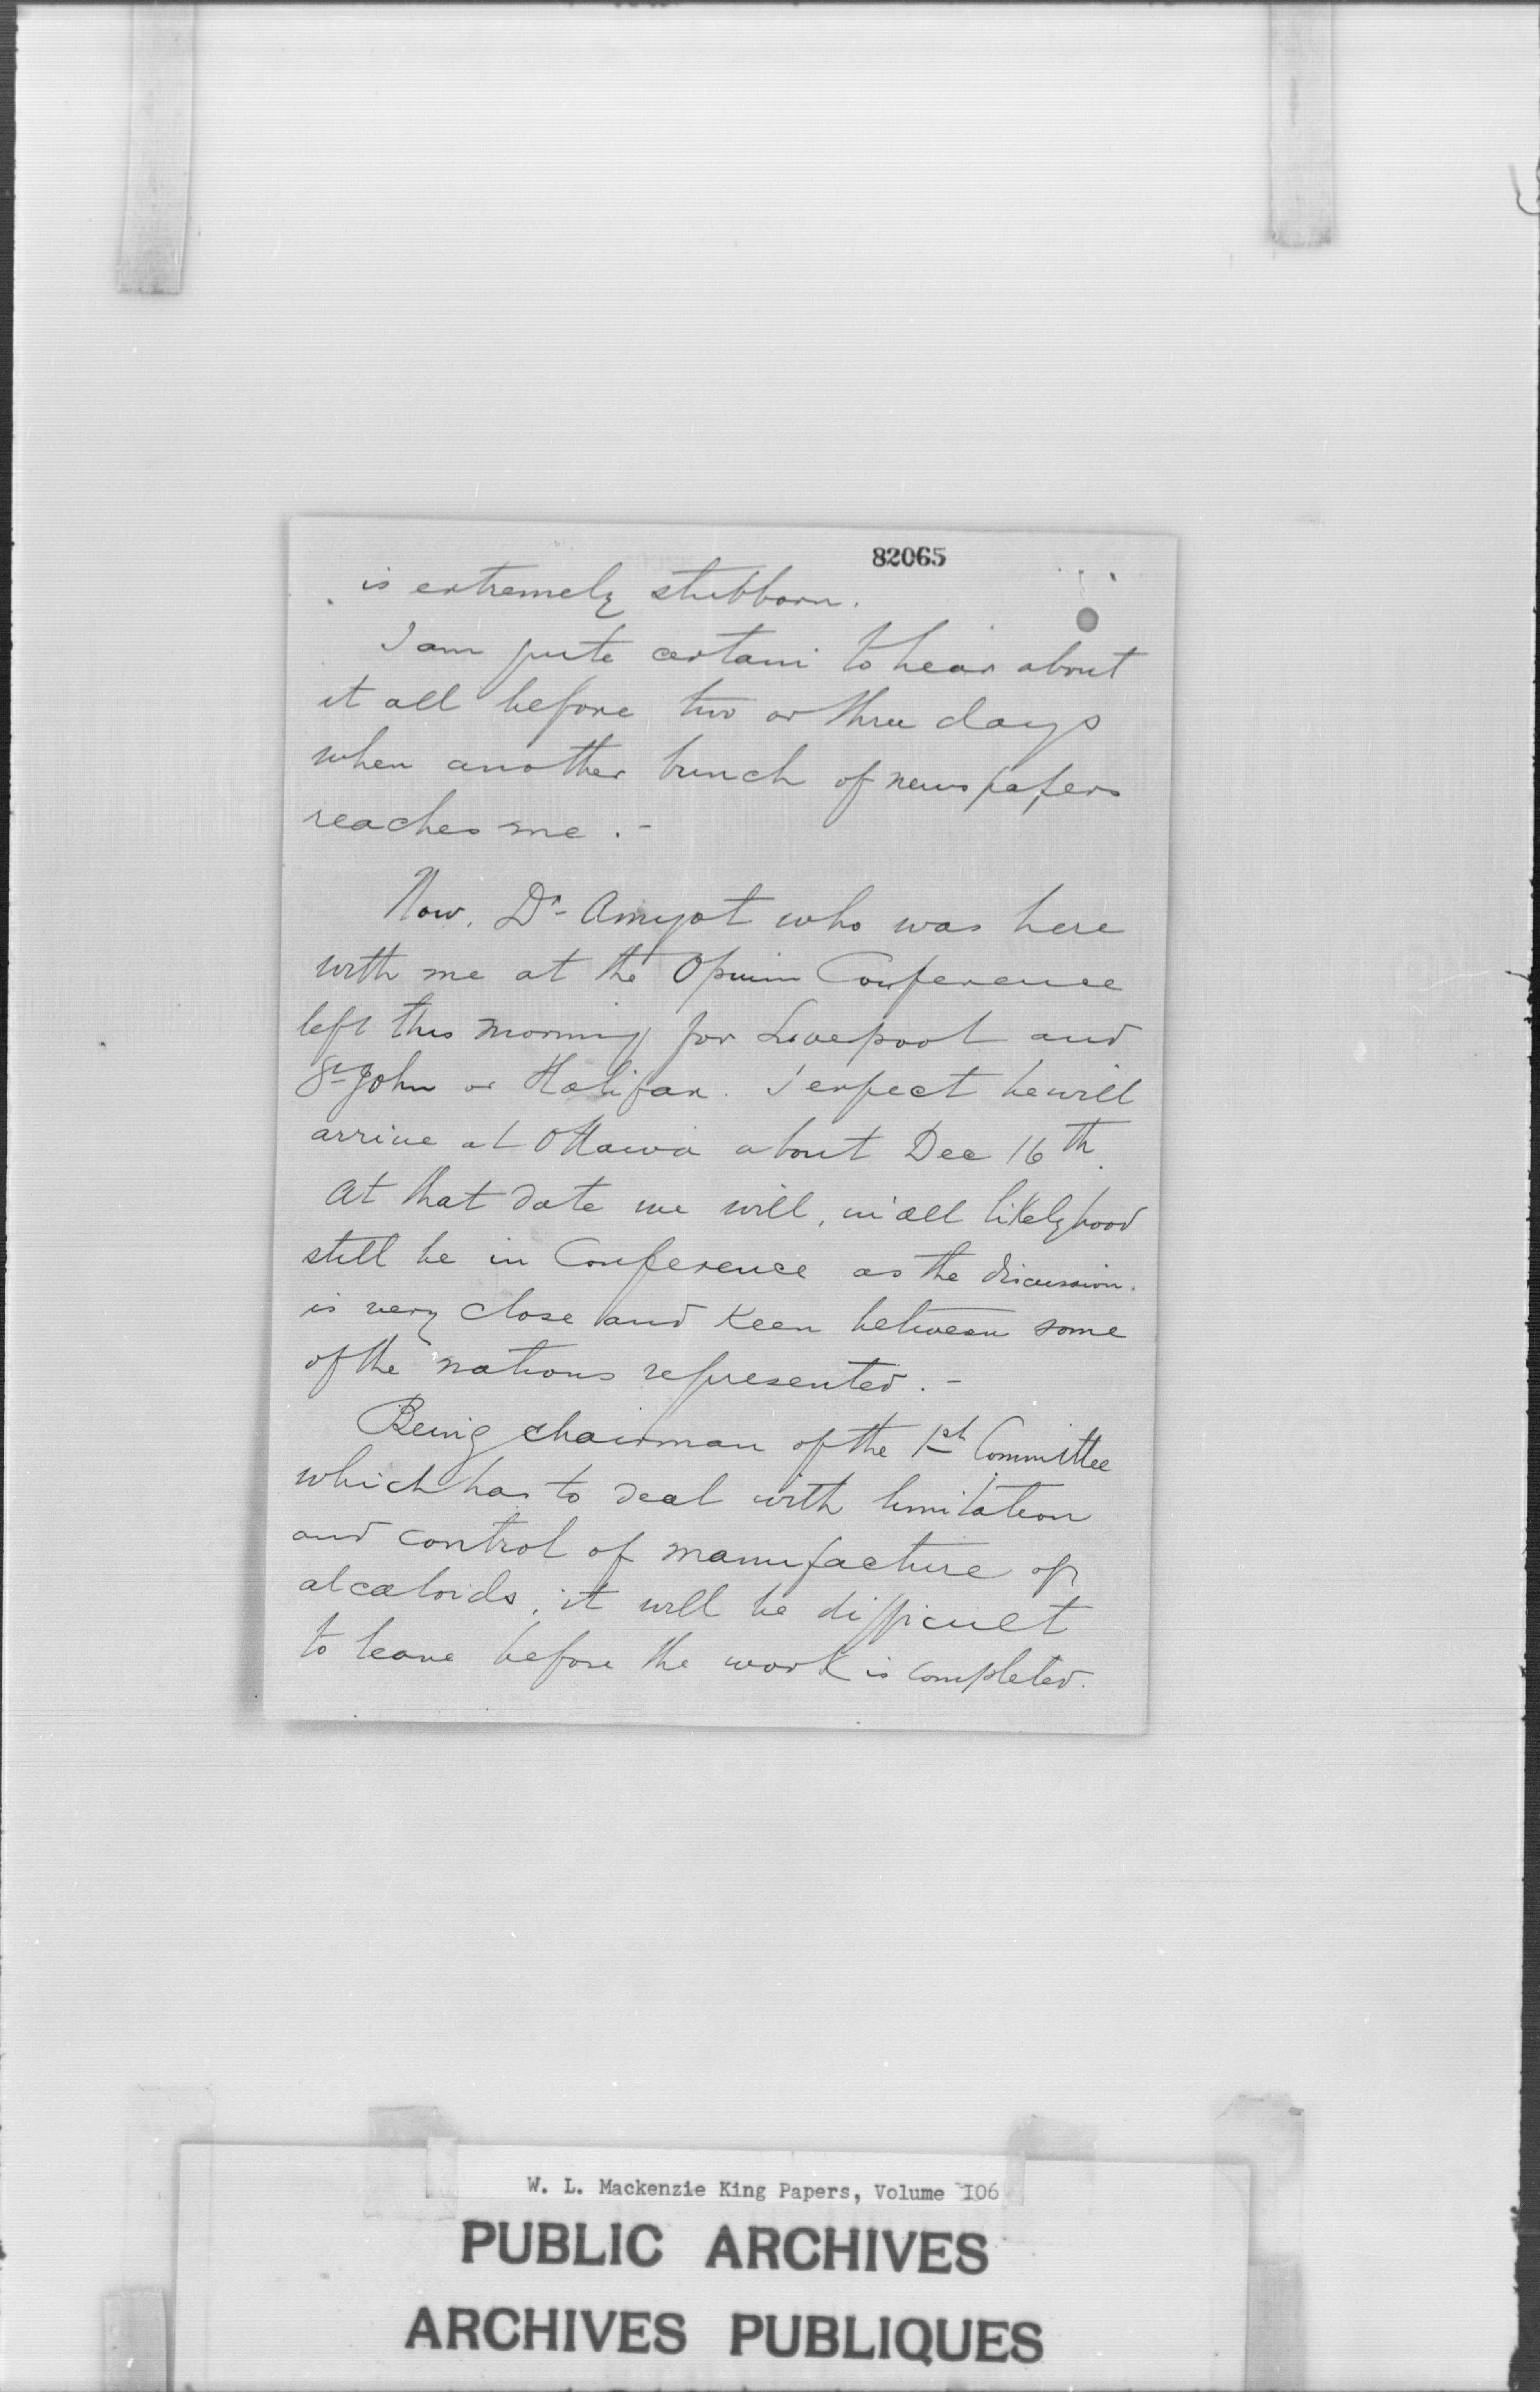 82065
is extremely stubborn.
I am quite certain to hear about
it all before two or three days
when another bunch of newspapers
reaches me. -
Now, Dr- Amyot who was here
with me at the Opium Conference
left this morning for Liverpool and
St John or Halifax. I expect he will
arrive at Ottawa about Dec 16th.
At that date we will, in all likelyhood
still be in Conference as the discussion.
is very close and keen between some
of the nations represented. -
Being chairman of the 1st Committee
which has to deal with limitation
and control of manufacture of
alcaloids, it will be difficult
to leave before the work is completed.
W. L. Mackenzie King Papers, Volume 106
PUBLIC ARCHIVES
ARCHIVES PUBLIQUES